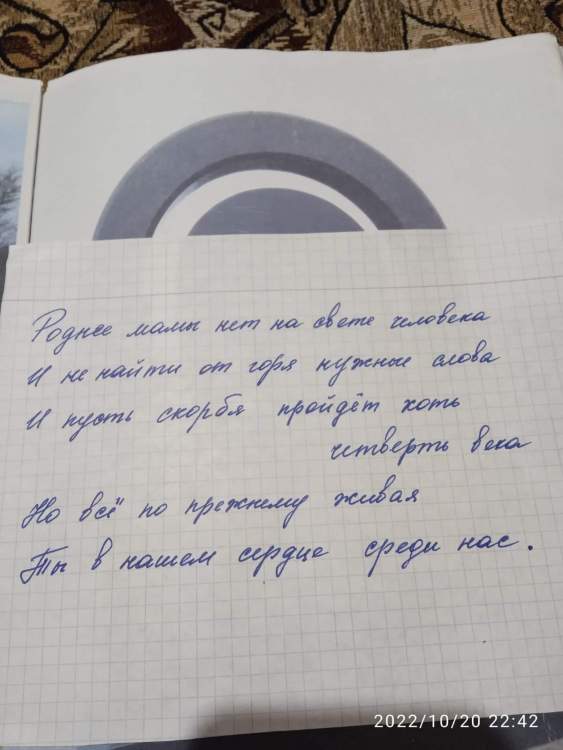 Роднее мамы нет на свете человека
И не найти от горя нужные слова
И пусть скорбя пройдёт хоть
четверть века
Но всё по прежнему живая
Ты в нашем сердце среди нас.
2022/10/20 22:42